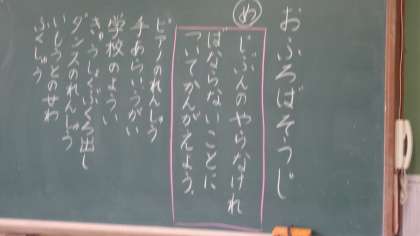 おふろばそうじ
め
じぶんのやらなければ
はならないことに
ついてかんがえよう。
ピアノのれんしゅう
手あらいうがい
学校のようい
きゅうしょくぶくろ出し
ダンスのれんしゅう
いもうとのせわ
ふくしゅう